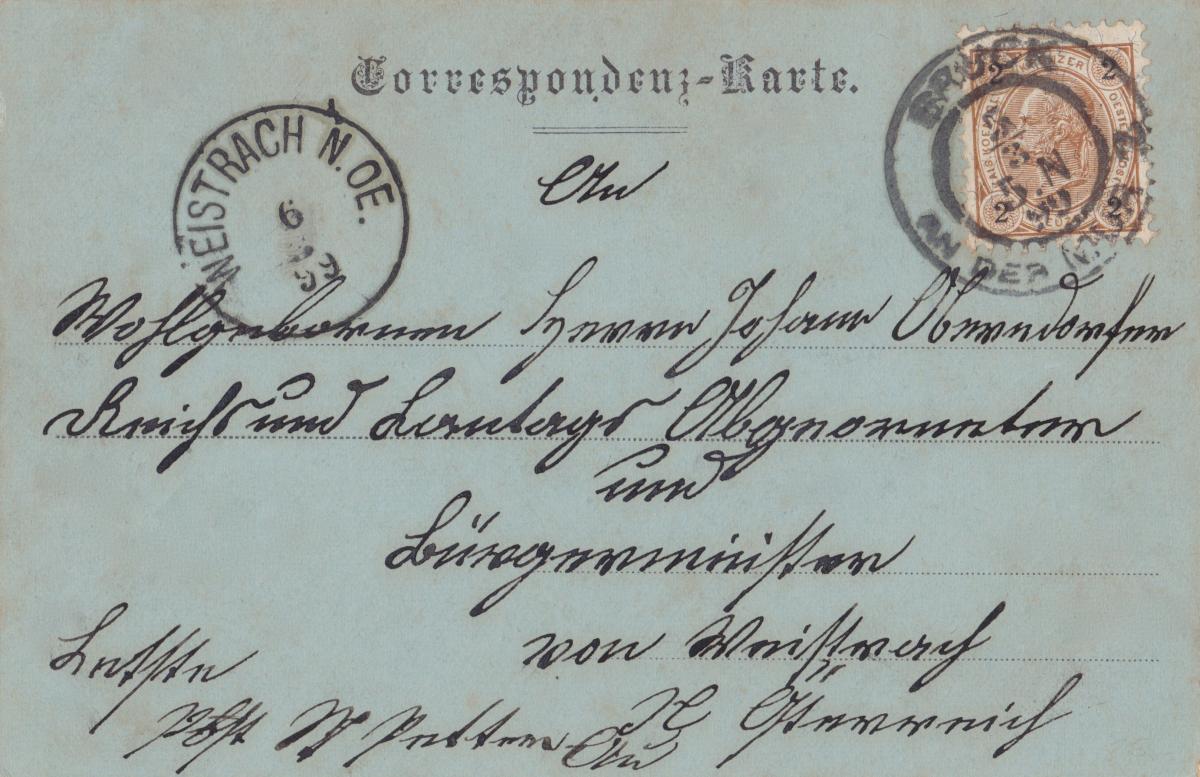 Correspondenz-Karte.
WEISTRACH N. OE.
6
BRUCK
AN DER
2 2
2 2
An
Wohlgebornen Herrn Johann Oberndorfer
Reichs und Lantags Abgeorneter
und
Bürgermeister
von Weistrach
Letste
N Österreich
Post St Petter
Au